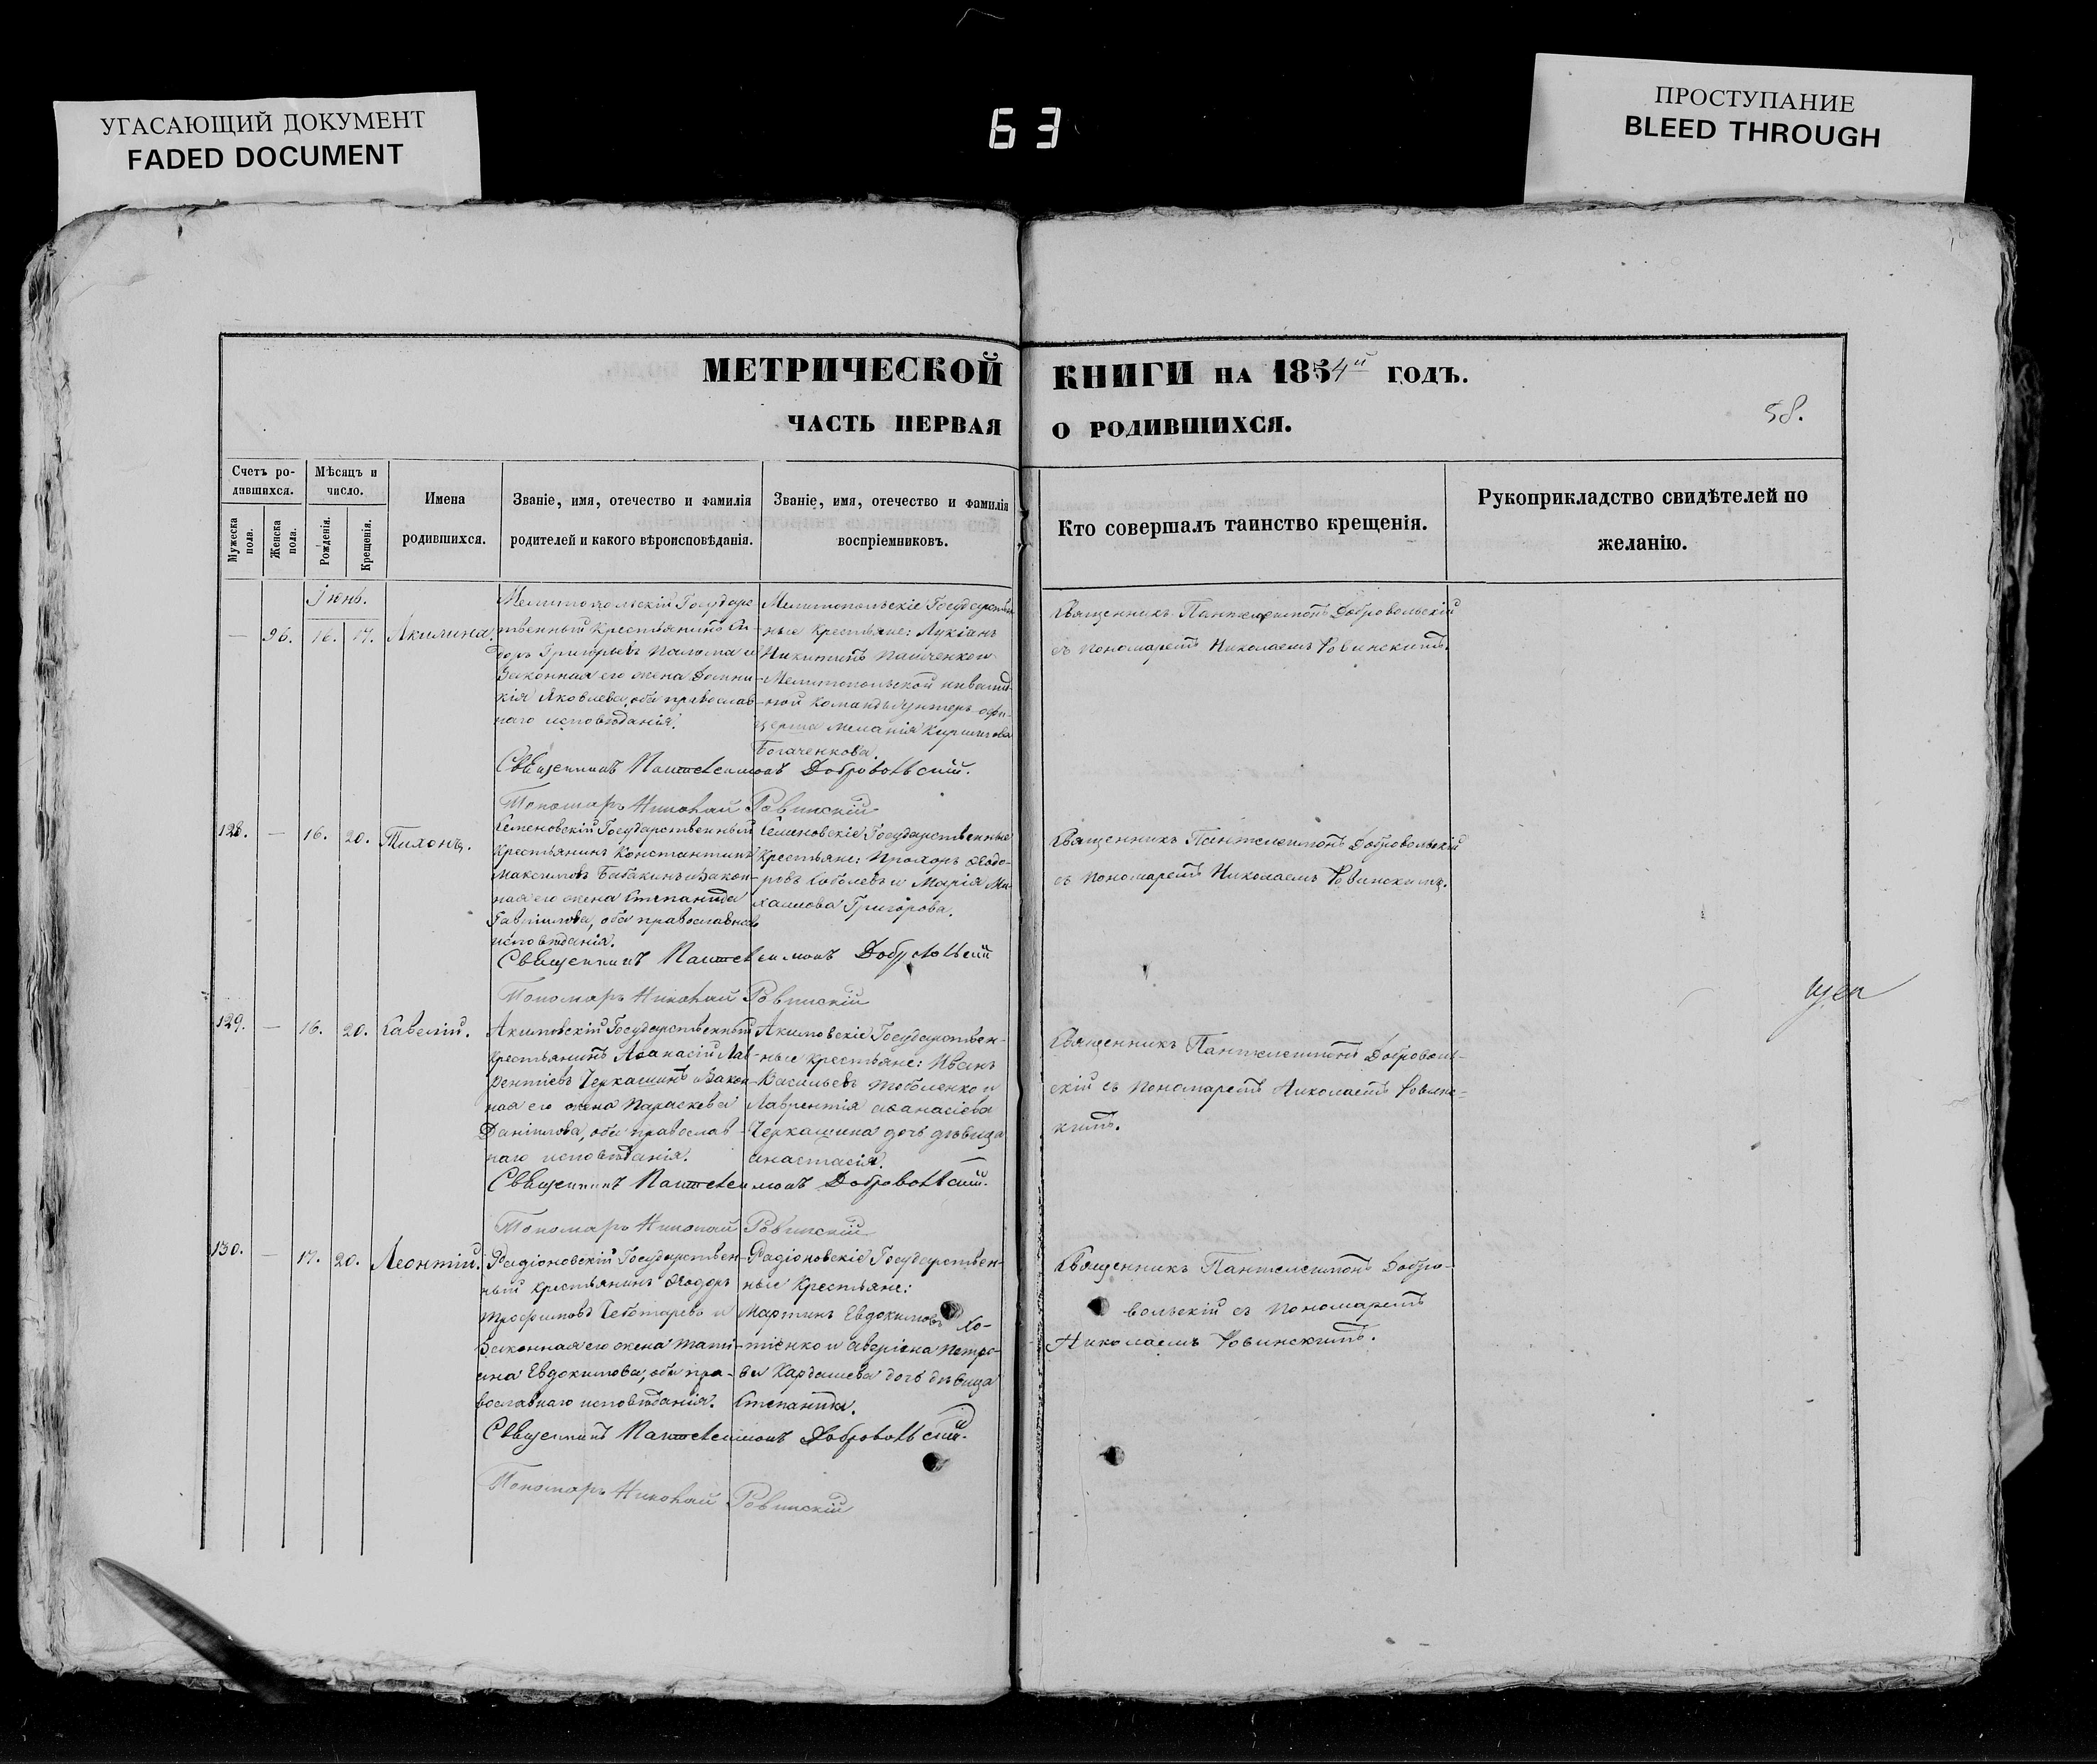 УГАСАЮЩИЙ ДОКУМЕНТ
FADED DOCUMENT
63
ПРОСТУПАНИЕ
BLEED THROUGH
МЕТРИЧЕСКОЙ КНИГИ НА 1854й ГОДЪ.
ЧАСТЬ ПЕРВАЯ О РОДИВШИХСЯ.
58.
Счетъ ро-
дившихся.
Мужеска пола.
Женска пола.
Мѣсяцъ и
число.
Рожденія.
Крещенія.
Имена
родившихся.
Званіе, имя, отечество и фамилія
родителей и какого вѣроисповѣданія.
Званіе, имя, отечество и фамилія
воспріемниковъ.
Кто совершалъ таинство крещенія.
Рукоприкладство свидѣтелей по
желанію.
Іюнь.
— 96. 16. 17. Акилина.
Мелитопольскій Государс
твенный Крестьянинъ Си-
доръ Григорьевъ Палома и
Законная его жена Домни-
кія Яковлева, оба православ
наго исповѣданія.
Мелитопольскіе Государствен
ные Крестьяне: Лукіанъ
Никитинъ Панченко и
Мелитопольской инвалид-
ной Команды унтеръ офи-
церша Меланія Кириллова
Богаченкова.
Священникъ Пантелеимонъ Добровольскій
съ Пономаремъ Николаемъ Ровинскимъ.
Священникъ Пантелеимонъ Добровольскій.
Пономарь Николай Ровинскій
128. — 16. 20. Тихонъ.
Семеновскій Государственный
Крестьянинъ Константинъ
Максимовъ Бабакинъ и Закон-
ная его жена Степанида
Гавріилова, оба православнаго
исповѣданія.
Семеновскіе Государственные
Крестьяне: Прохоръ Ѳеодо-
ровъ Соболевъ и Марія Ми-
хаилова Григорова.
Священникъ Пантелеимонъ Добровольскій
съ Пономаремъ Николаемъ Ровинскимъ.
Священникъ Пантелеимонъ Добровольскій
Пономарь Николай Ровинскій
129. — 16. 20. Савелій.
Акимовскій Государственный
Крестьянинъ Аѳанасій Лав-
рентіевъ Черкашинъ и Закон-
ная его жена Параскева
Даніилова, оба православ-
наго исповѣданія.
Акимовскіе Государствен-
ные крестьяне: Иванъ
Васильевъ Тоболенко и
Лаврентія Аѳанасіева
Черкашина дочь дѣвица
Анастасія.
Священникъ Пантелеимонъ Доброволь-
скій съ Пономаремъ Николаемъ Ровинс-
кимъ.
Священникъ Пантелеимонъ Добровольскій.
Пономарь Николай Ровинскій
130. — 17. 20. Леонтій.
Радіоновскій Государствен-
ный крестьянинъ Ѳеодоръ
Трофимовъ Чеботаревъ и
Законная его жена Тати-
ана Евдокимова, оба пра-
вославнаго исповѣданія.
Радіоновскіе Государствен-
ные Крестьяне:
Мартинъ Евдокимовъ Хо-
тіенко и Аверіана Петро-
ва Кардашева дочь дѣвица
Степанида.
Священникъ Пантелеимонъ Добро-
вольскій съ Пономаремъ
Николаемъ Ровинскимъ.
Священникъ Пантелеимонъ Добровольскій.
Пономарь Николай Ровинскій